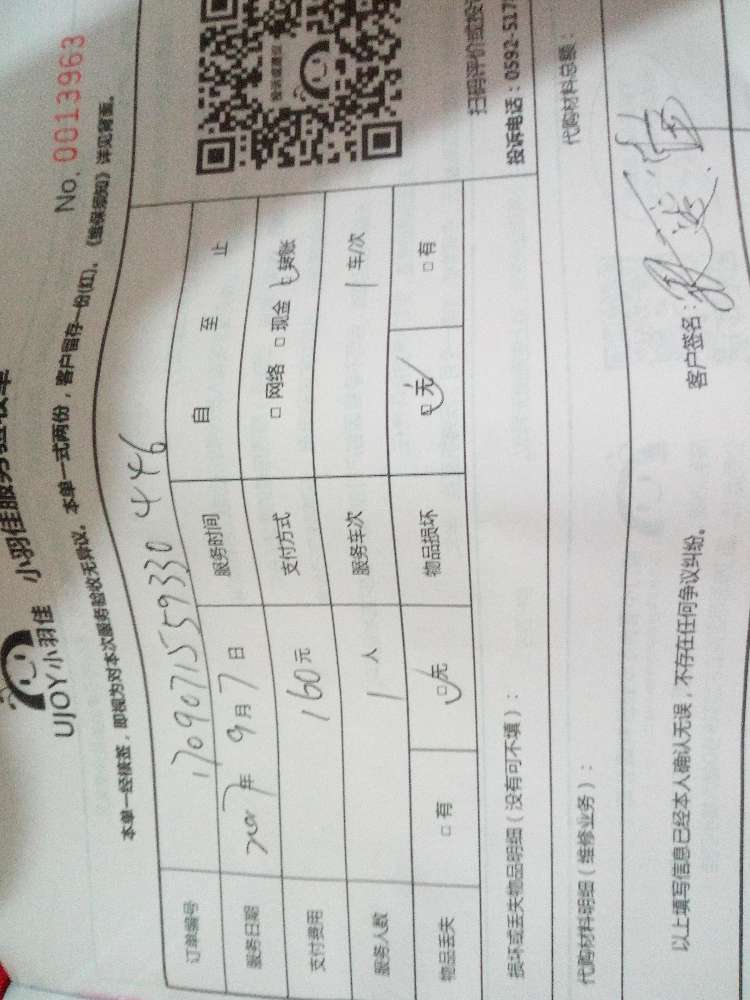 UJOY小羽佳 小羽佳服务验收单
No. 0013963
本单一经核签，即视为对本次服务验收无异议。本单一式两份，客户留存一份(红)。《维保须知》详见背面。
订单编号 170907155 9330 446
服务日期 2017年 9月 7日 服务时间 自 至 止
支付费用 160元 支付方式 □ 网络 □ 现金 □ 转账
服务人数 1人 服务车次 1车/次
物品丢失 □ 有 □ 无 物品损坏 □ 无 □ 有
投诉或建议
扫码评价或投
投诉电话：0592-517
损坏或丢失物品明细（没有可不填）：
代购材料明细（维修业务）：
代购材料总额：
以上填写信息已经本人确认无误，不存在任何争议纠纷。
客户签名：